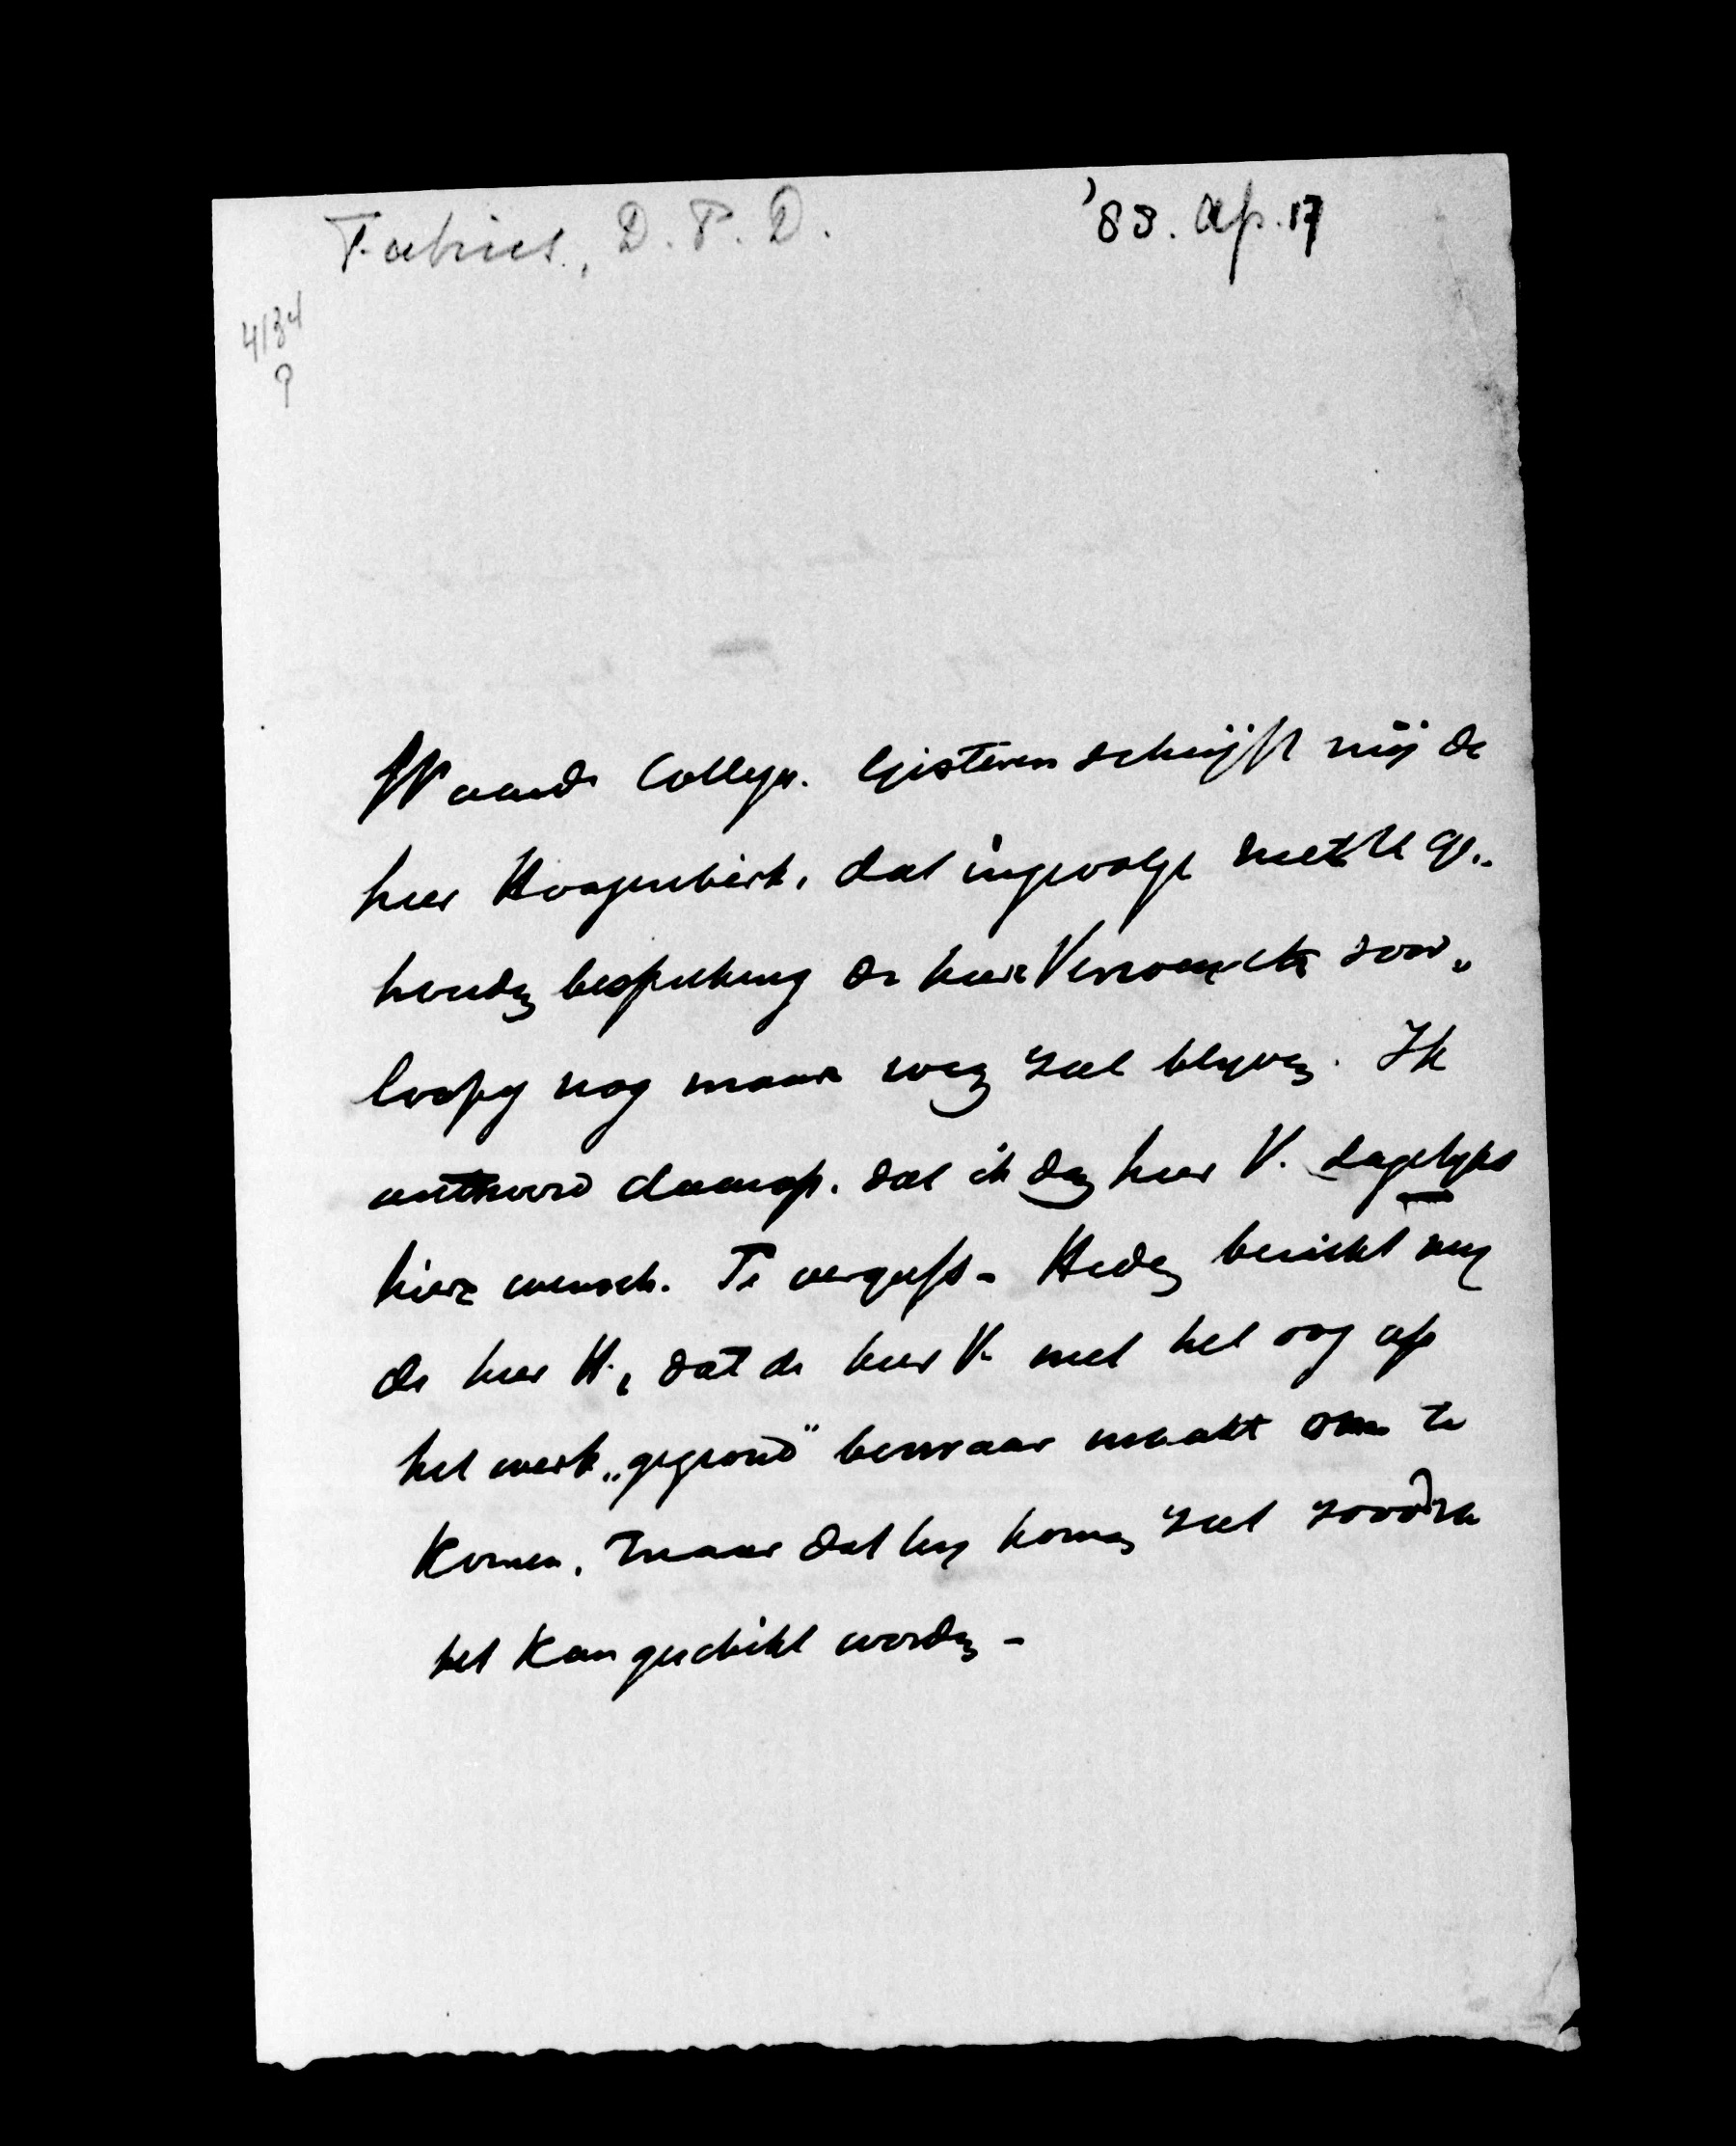 Fabius, D.P.D.
'88. Ap. 17
4134
Waarde Collega. Gisteren schrijft mij de
heer Hoogenbirk, dat ingevolge met U ge„
houden bespreking de heer voor„
loopig nog maar weg zal blijven. Ik
antwoord daarop, dat ik den heer V. dagelijks
hier wensch. Te vergeefs – Heden bericht mij
de heer H., dat de heer V. met het oog op
het werk „gegrond" bezwaar maakt om te
komen, maar dat hij komen zal zoodra
het kan geschikt worden –